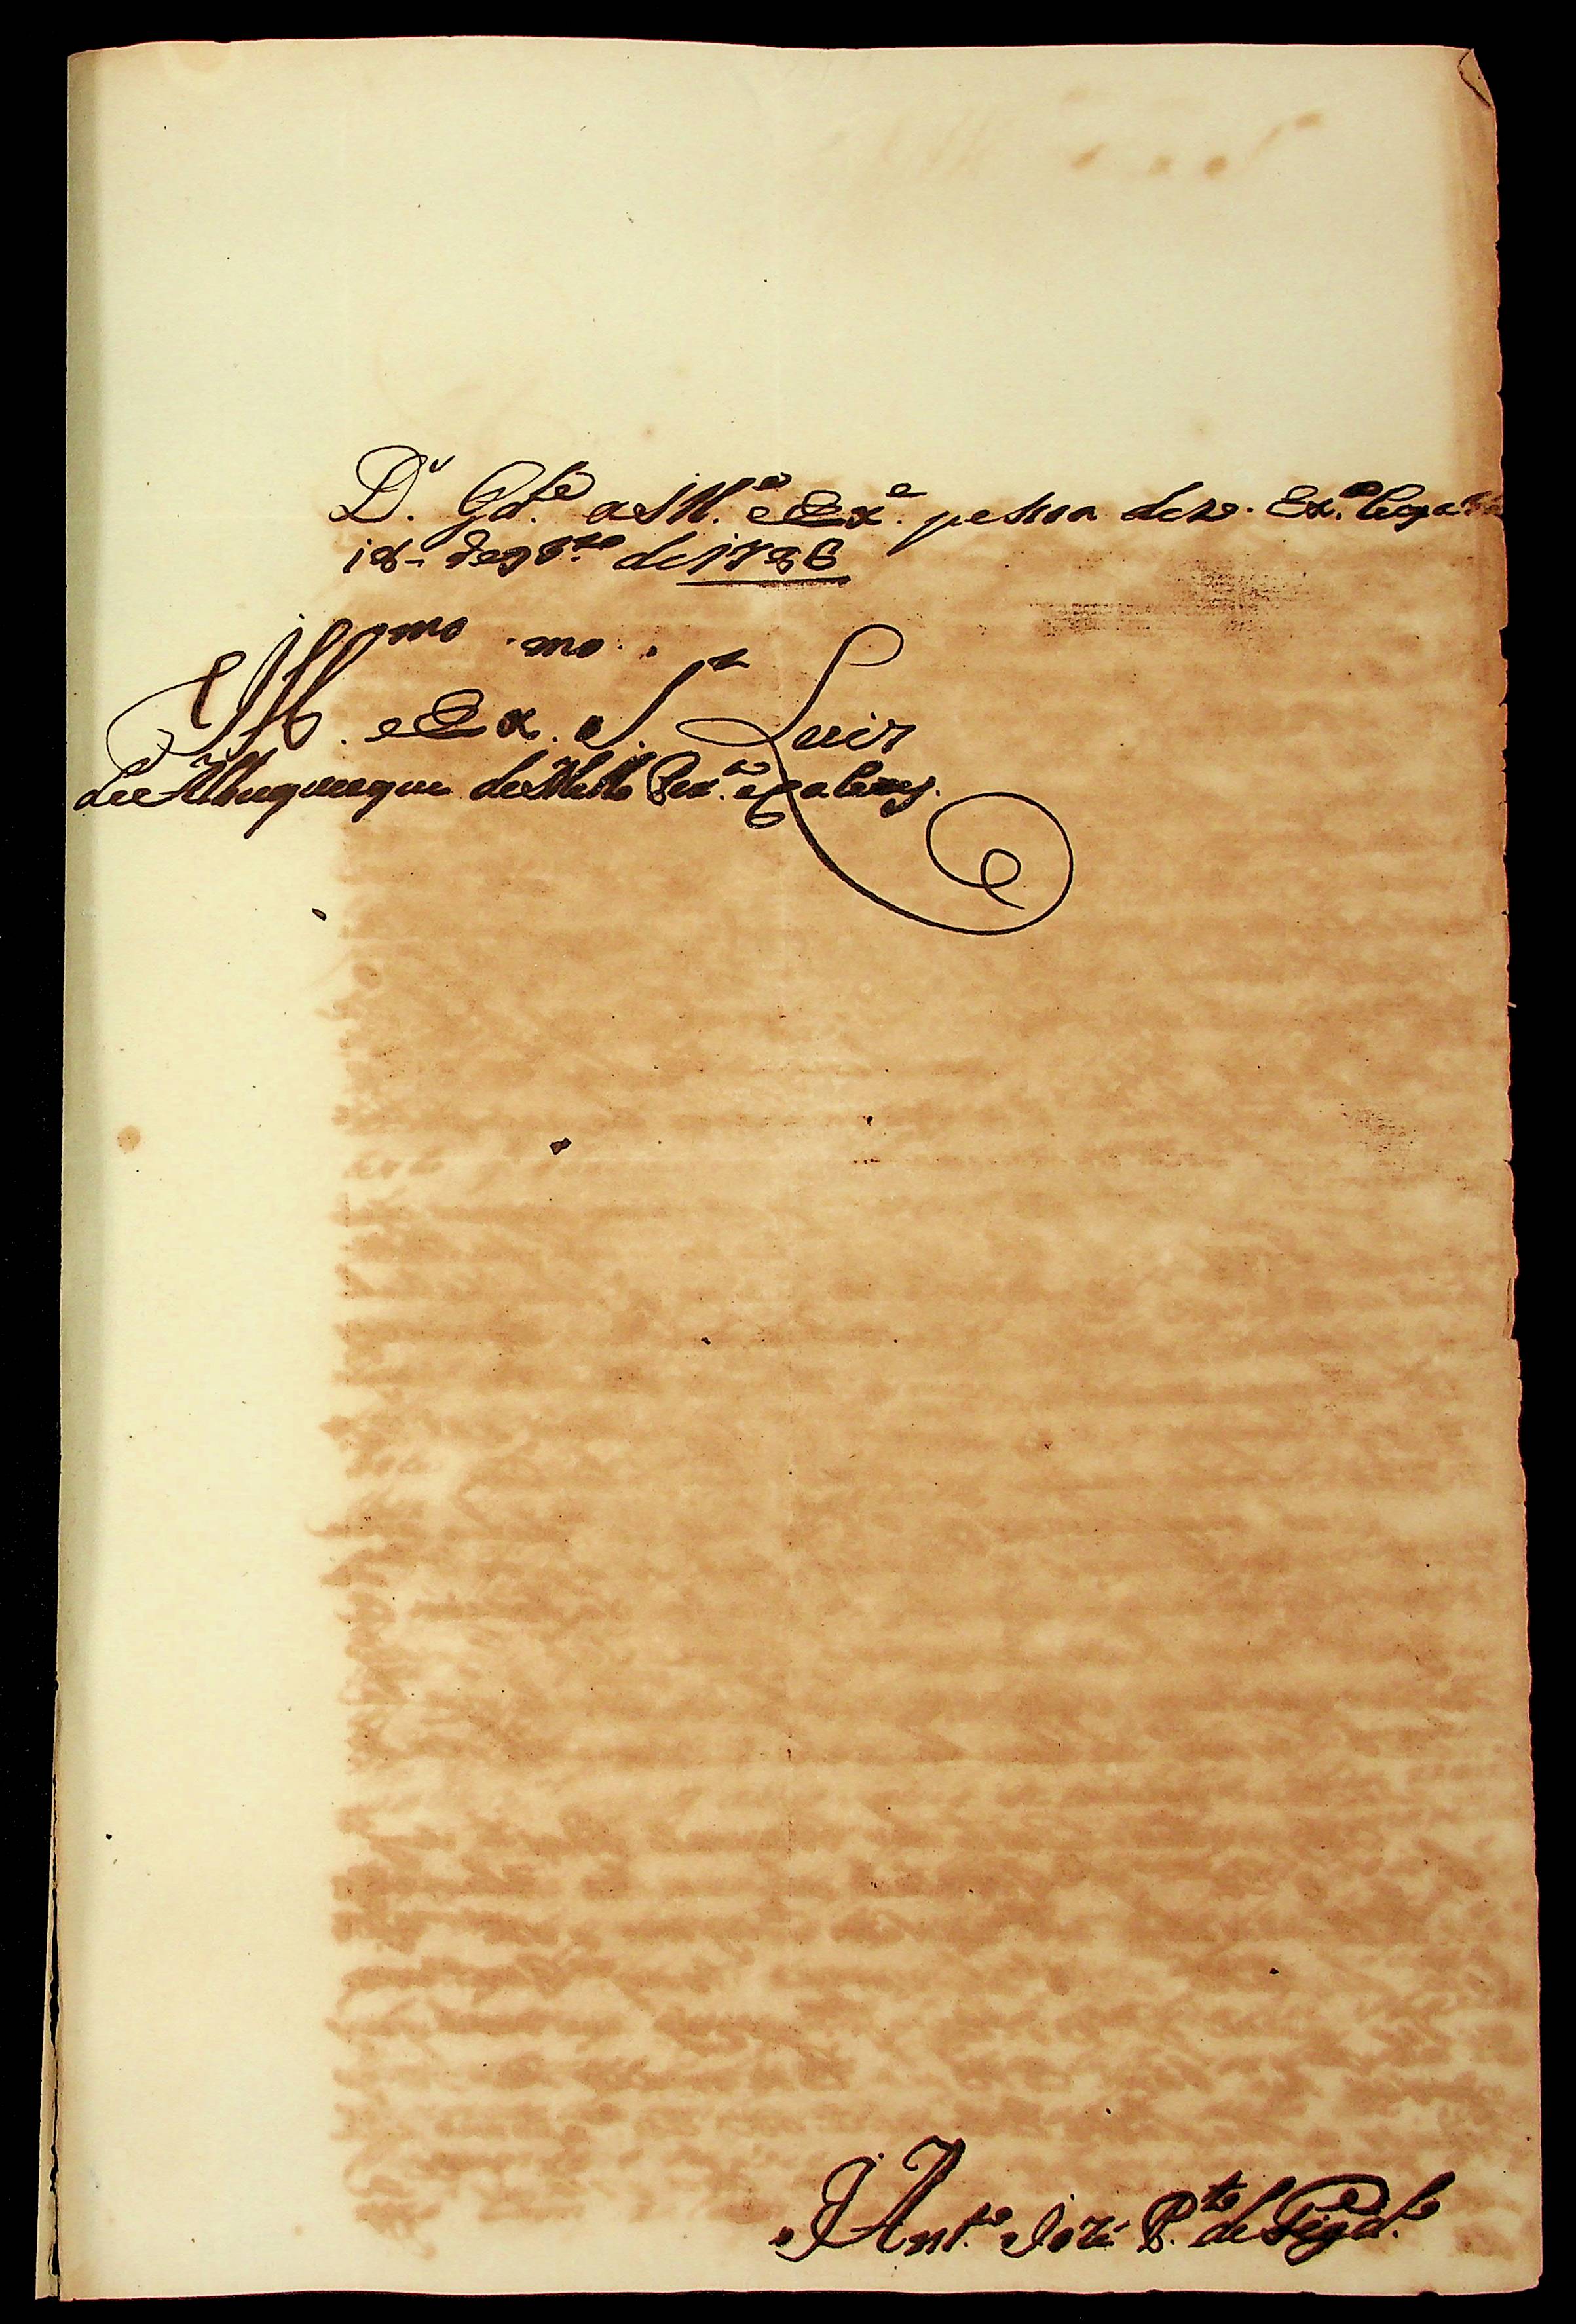 D.s G.de a Ill.a e Ex.a pessoa de V. Ex.a
18 de 9br.o de 1786
Ill.mo e Ex.mo S.r Luiz
de Albuquerque de Mello Per.a e Caceres.
Ant.o Jozé P.to de Figd.o